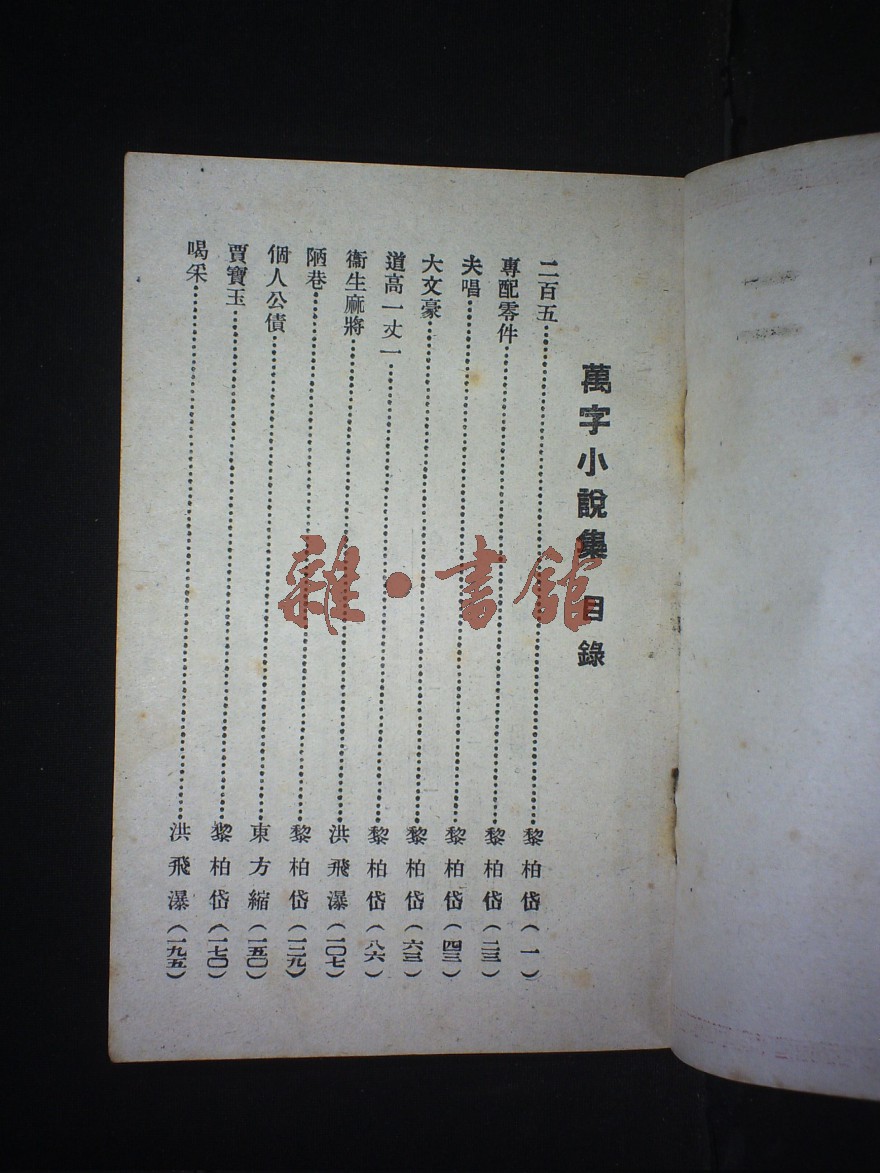 萬字小說集 目錄
二百五……黎柏岱(一)
專配零件……黎柏岱(二三)
夫唱……黎柏岱(四三)
大文豪……黎柏岱(六三)
道高一丈一……黎柏岱(八六)
衞生麻將……洪飛瀑(一〇七)
陋巷……黎柏岱(一二九)
個人公債……東方縮(一五〇)
賈寶玉……黎柏岱(一七〇)
喝采……洪飛瀑(一九五)
雜·書館